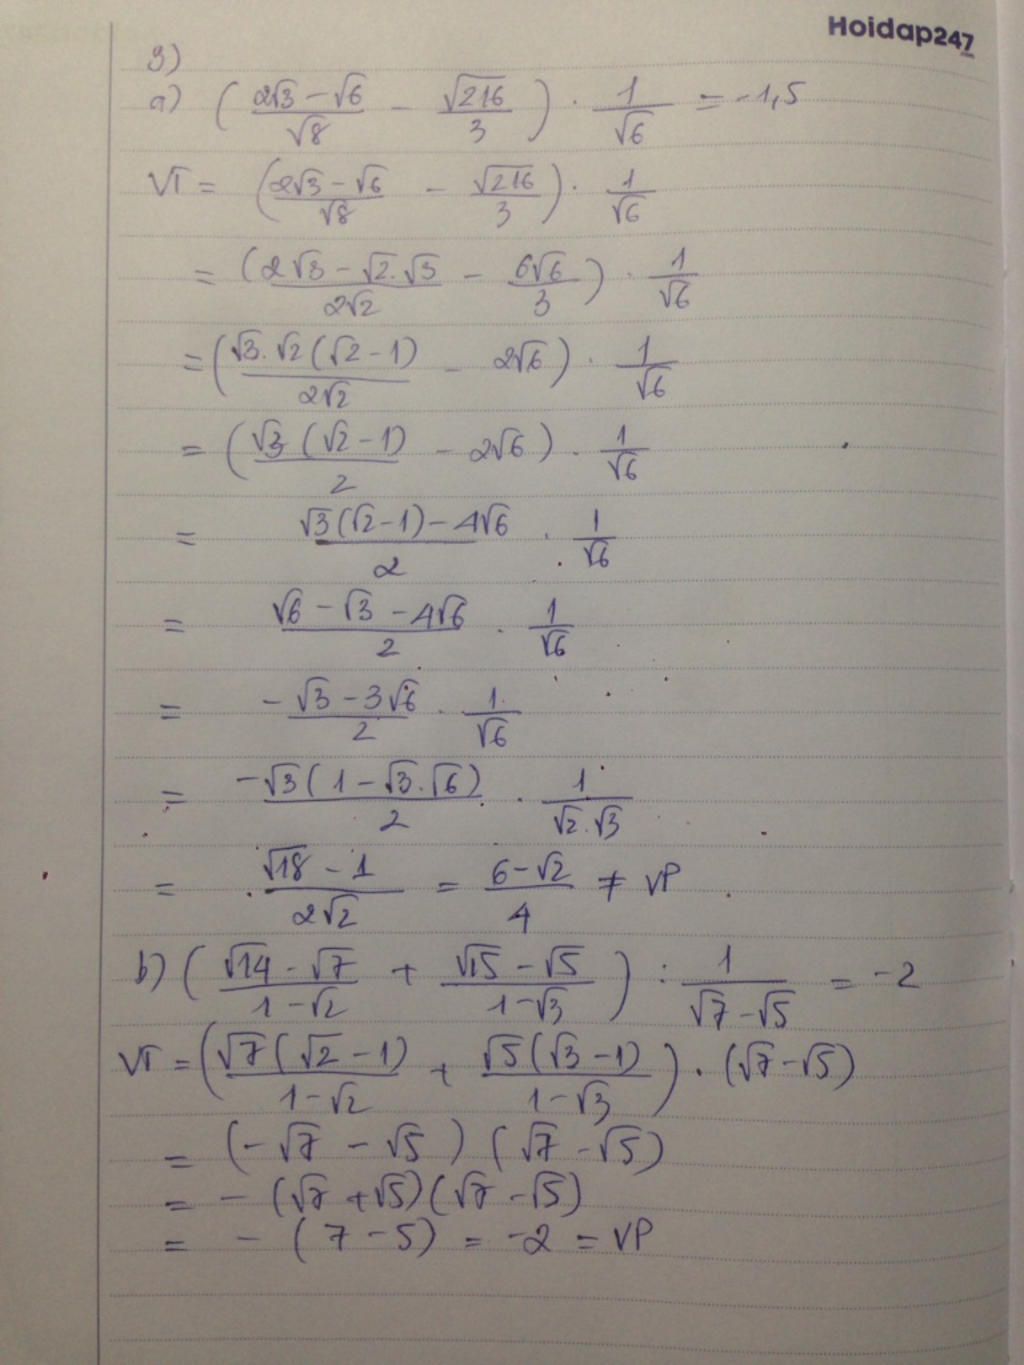 Hoidap247
3)
a) ( (2√3 - √6)/√8 - √216/3 ) . 1/√6 = -1,5
VT = ( (2√3 - √6)/√8 - √216/3 ) . 1/√6
= ( (2√3 - √2.√3)/2√2 - 6√6/3 ) . 1/√6
= ( √3.√2(√2 - 1)/2√2 - 2√6 ) . 1/√6
= ( √3(√2 - 1)/2 - 2√6 ) . 1/√6
= (√3(√2 - 1) - 4√6)/2 . 1/√6
= (√6 - √3 - 4√6)/2 . 1/√6
= (-√3 - 3√6)/2 . 1/√6
= -√3(1 - √3.√6)/2 . 1/(√2.√3)
= (√18 - 1)/2√2 = (6 - √2)/4 ≠ VP
b) ( (√14 - √7)/(1 - √2) + (√15 - √5)/(1 - √3) ) : 1/(√7 - √5) = -2
VT = ( √7(√2 - 1)/(1 - √2) + √5(√3 - 1)/(1 - √3) ) . (√7 - √5)
= (-√7 - √5)(√7 - √5)
= -(√7 + √5)(√7 - √5)
= -(7 - 5) = -2 = VP